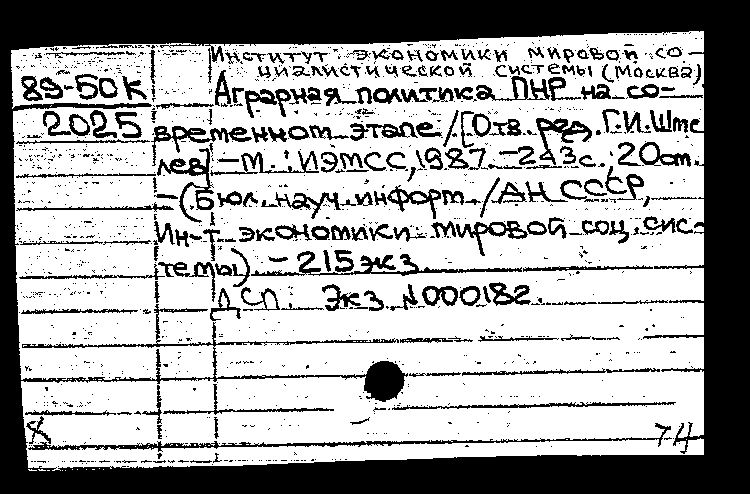 Институт экономики мировой со-
циалистической системы (Москва)
89-50К Аграрная политика ПНР на со-
2025 временном этапе / [Отв. ред. Г.И. Шме
лев] – М.: ИЭМСС, 1987. – 243с.; 20см.
– (Бюл. науч. информ. / АН СССР,
Ин-т экономики мировой соц. сис-
темы). – 215 экз.
ДСП. Экз. N000182.